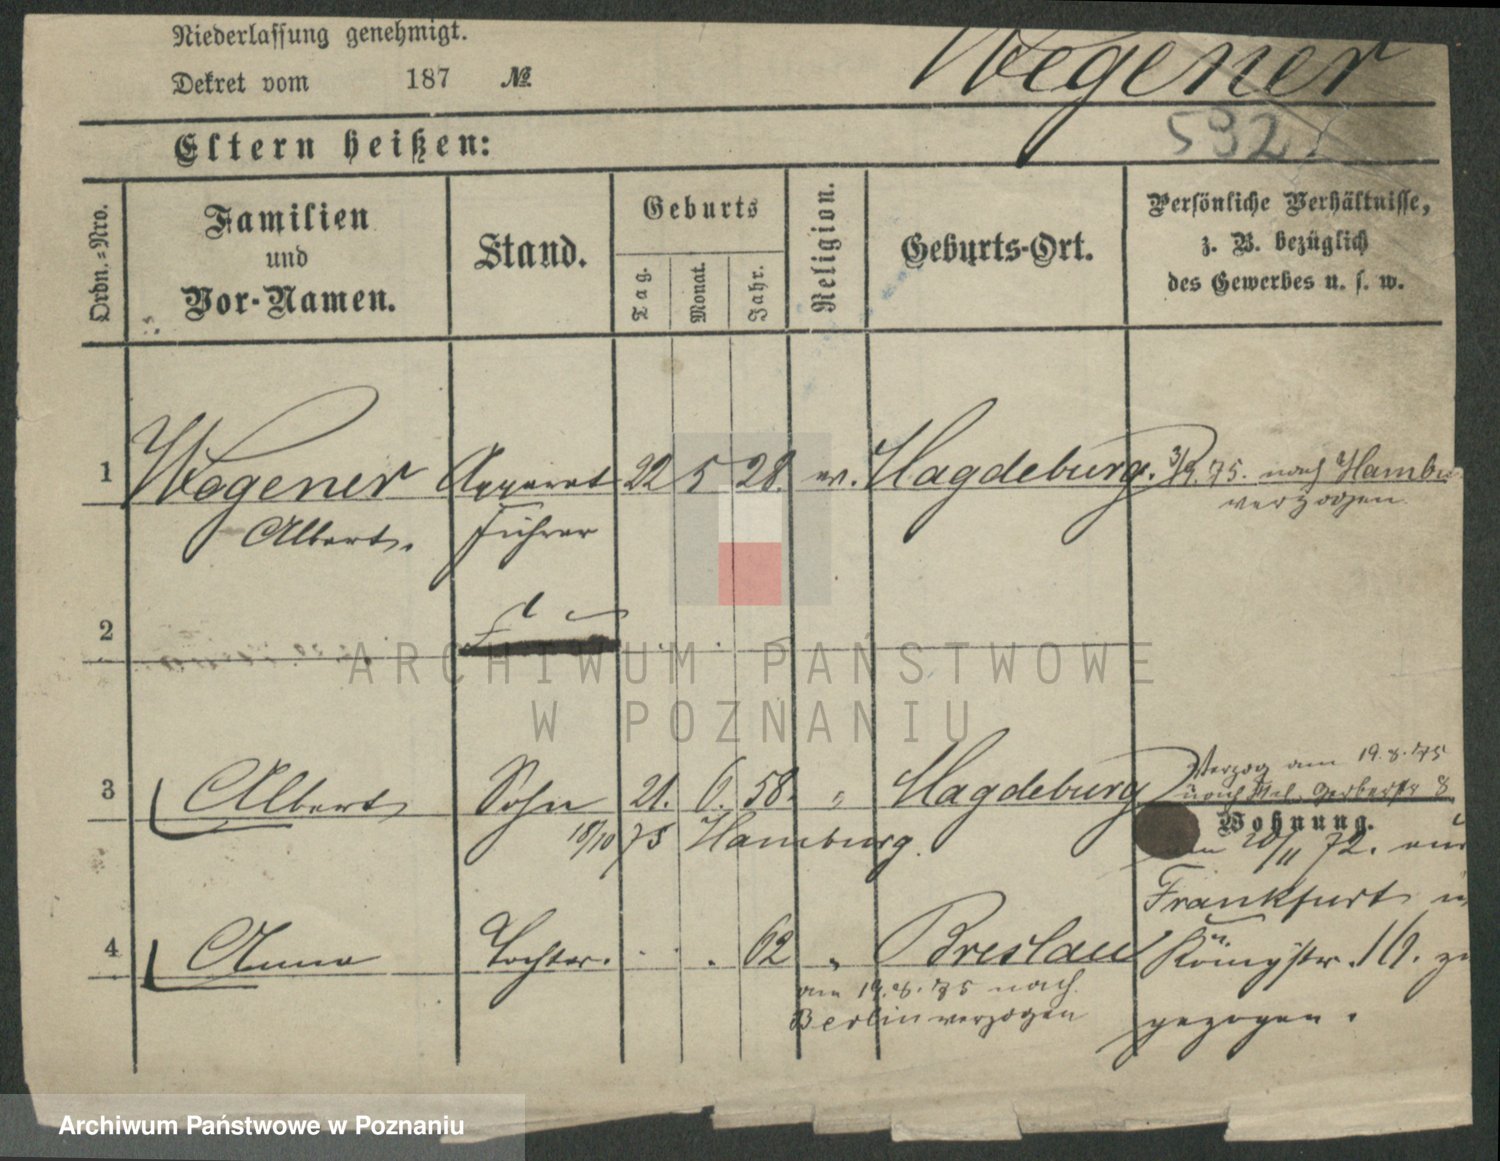 Niederlassung genehmigt.
Dekret vom 187 №
Wegener
532
Eltern heißen:
Ordn.-Nro.
Familien
und
Vor-Namen.
Stand.
Geburts
Tag.
Monat.
Jahr.
Religion.
Geburts-Ort.
Persönliche Verhältnisse,
z. B. bezüglich
des Gewerbes u. s. w.
1 Wegener Apparat 22 5 28. ev. Magdeburg. 75. nach Hambu
Albert. Führer verzogen.
2
3 Albert Sohn 21. 6. 58. " Magdeburg
Verzog am 19.8.75
nach Gerberstr 8
18/10 75 Hamburg.
Wohnung.
20/11 72. aus
Frankfurt
4 Anna Tochter. 62 " Breslau
Königstr. 16. zu
gezogen.
am 19.8.75 nach
Berlin verzogen
ARCHIWUM PAŃSTWOWE
W POZNANIU
Archiwum Państwowe w Poznaniu